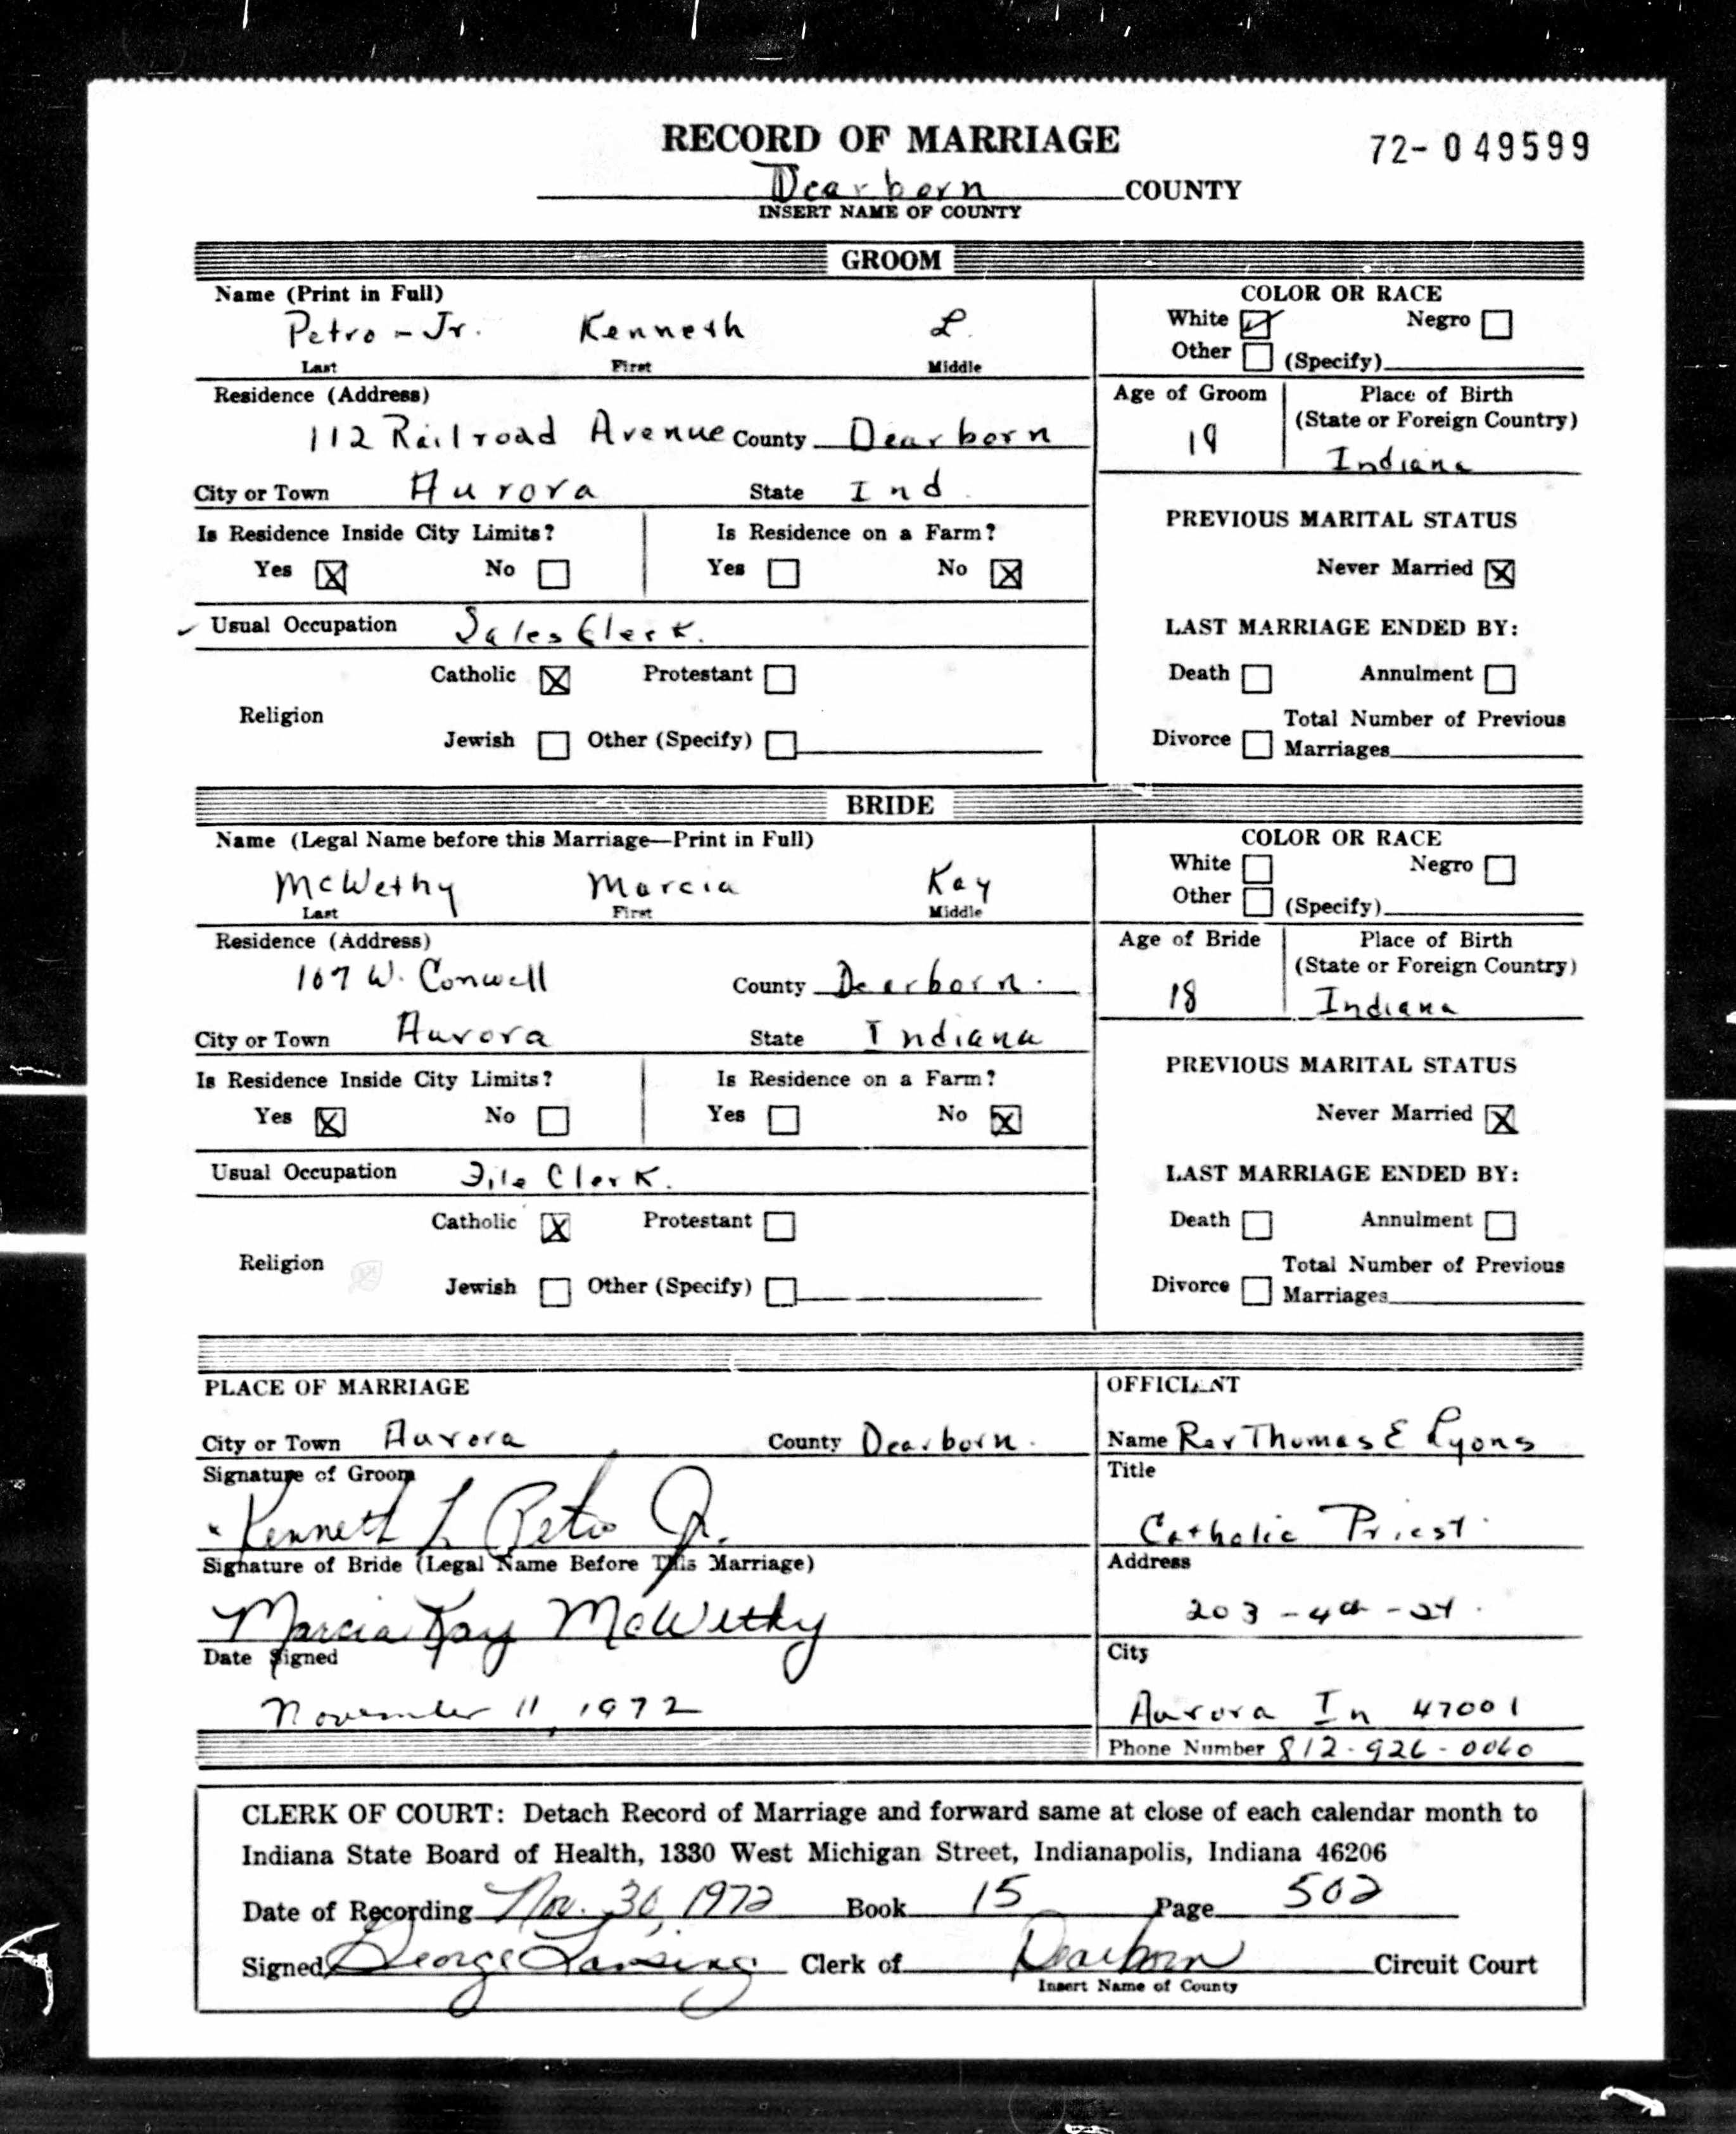 RECORD OF MARRIAGE
72-049599
Dearborn COUNTY
INSERT NAME OF COUNTY
GROOM
Name (Print in Full)
Petro - Jr. Kenneth L.
Last First Middle
COLOR OR RACE
White Negro
Other (Specify)
Residence (Address)
112 Railroad Avenue County Dearborn
City or Town Aurora State Ind.
Age of Groom
19
Place of Birth
(State or Foreign Country)
Indiana
Is Residence Inside City Limits?
Yes X No
Is Residence on a Farm?
Yes No X
PREVIOUS MARITAL STATUS
Never Married X
Usual Occupation Sales Clerk.
LAST MARRIAGE ENDED BY:
Death Annulment
Divorce
Total Number of Previous
Marriages
Religion
Catholic X Protestant
Jewish Other (Specify)
BRIDE
Name (Legal Name before this Marriage—Print in Full)
McWethy Marcia Kay
Last First Middle
COLOR OR RACE
White Negro
Other (Specify)
Residence (Address)
107 W. Conwell County Dearborn.
City or Town Aurora State Indiana
Age of Bride
18
Place of Birth
(State or Foreign Country)
Indiana
Is Residence Inside City Limits?
Yes X No
Is Residence on a Farm?
Yes No X
PREVIOUS MARITAL STATUS
Never Married X
Usual Occupation File Clerk.
LAST MARRIAGE ENDED BY:
Death Annulment
Divorce
Total Number of Previous
Marriages
Religion
Catholic X Protestant
Jewish Other (Specify)
PLACE OF MARRIAGE
City or Town Aurora County Dearborn.
Signature of Groom
x Kenneth L Petro Jr.
Signature of Bride (Legal Name Before This Marriage)
Marcia Kay McWethy
Date Signed
November 11, 1972
OFFICIANT
Name Rev Thomas E Lyons
Title
Catholic Priest
Address
203 - 4th - St.
City
Aurora In 47001
Phone Number 812-926-0060
CLERK OF COURT: Detach Record of Marriage and forward same at close of each calendar month to
Indiana State Board of Health, 1330 West Michigan Street, Indianapolis, Indiana 46206
Date of Recording Nov. 30, 1972 Book 15 Page 502
Signed George Lansing Clerk of Dearborn Circuit Court
Insert Name of County